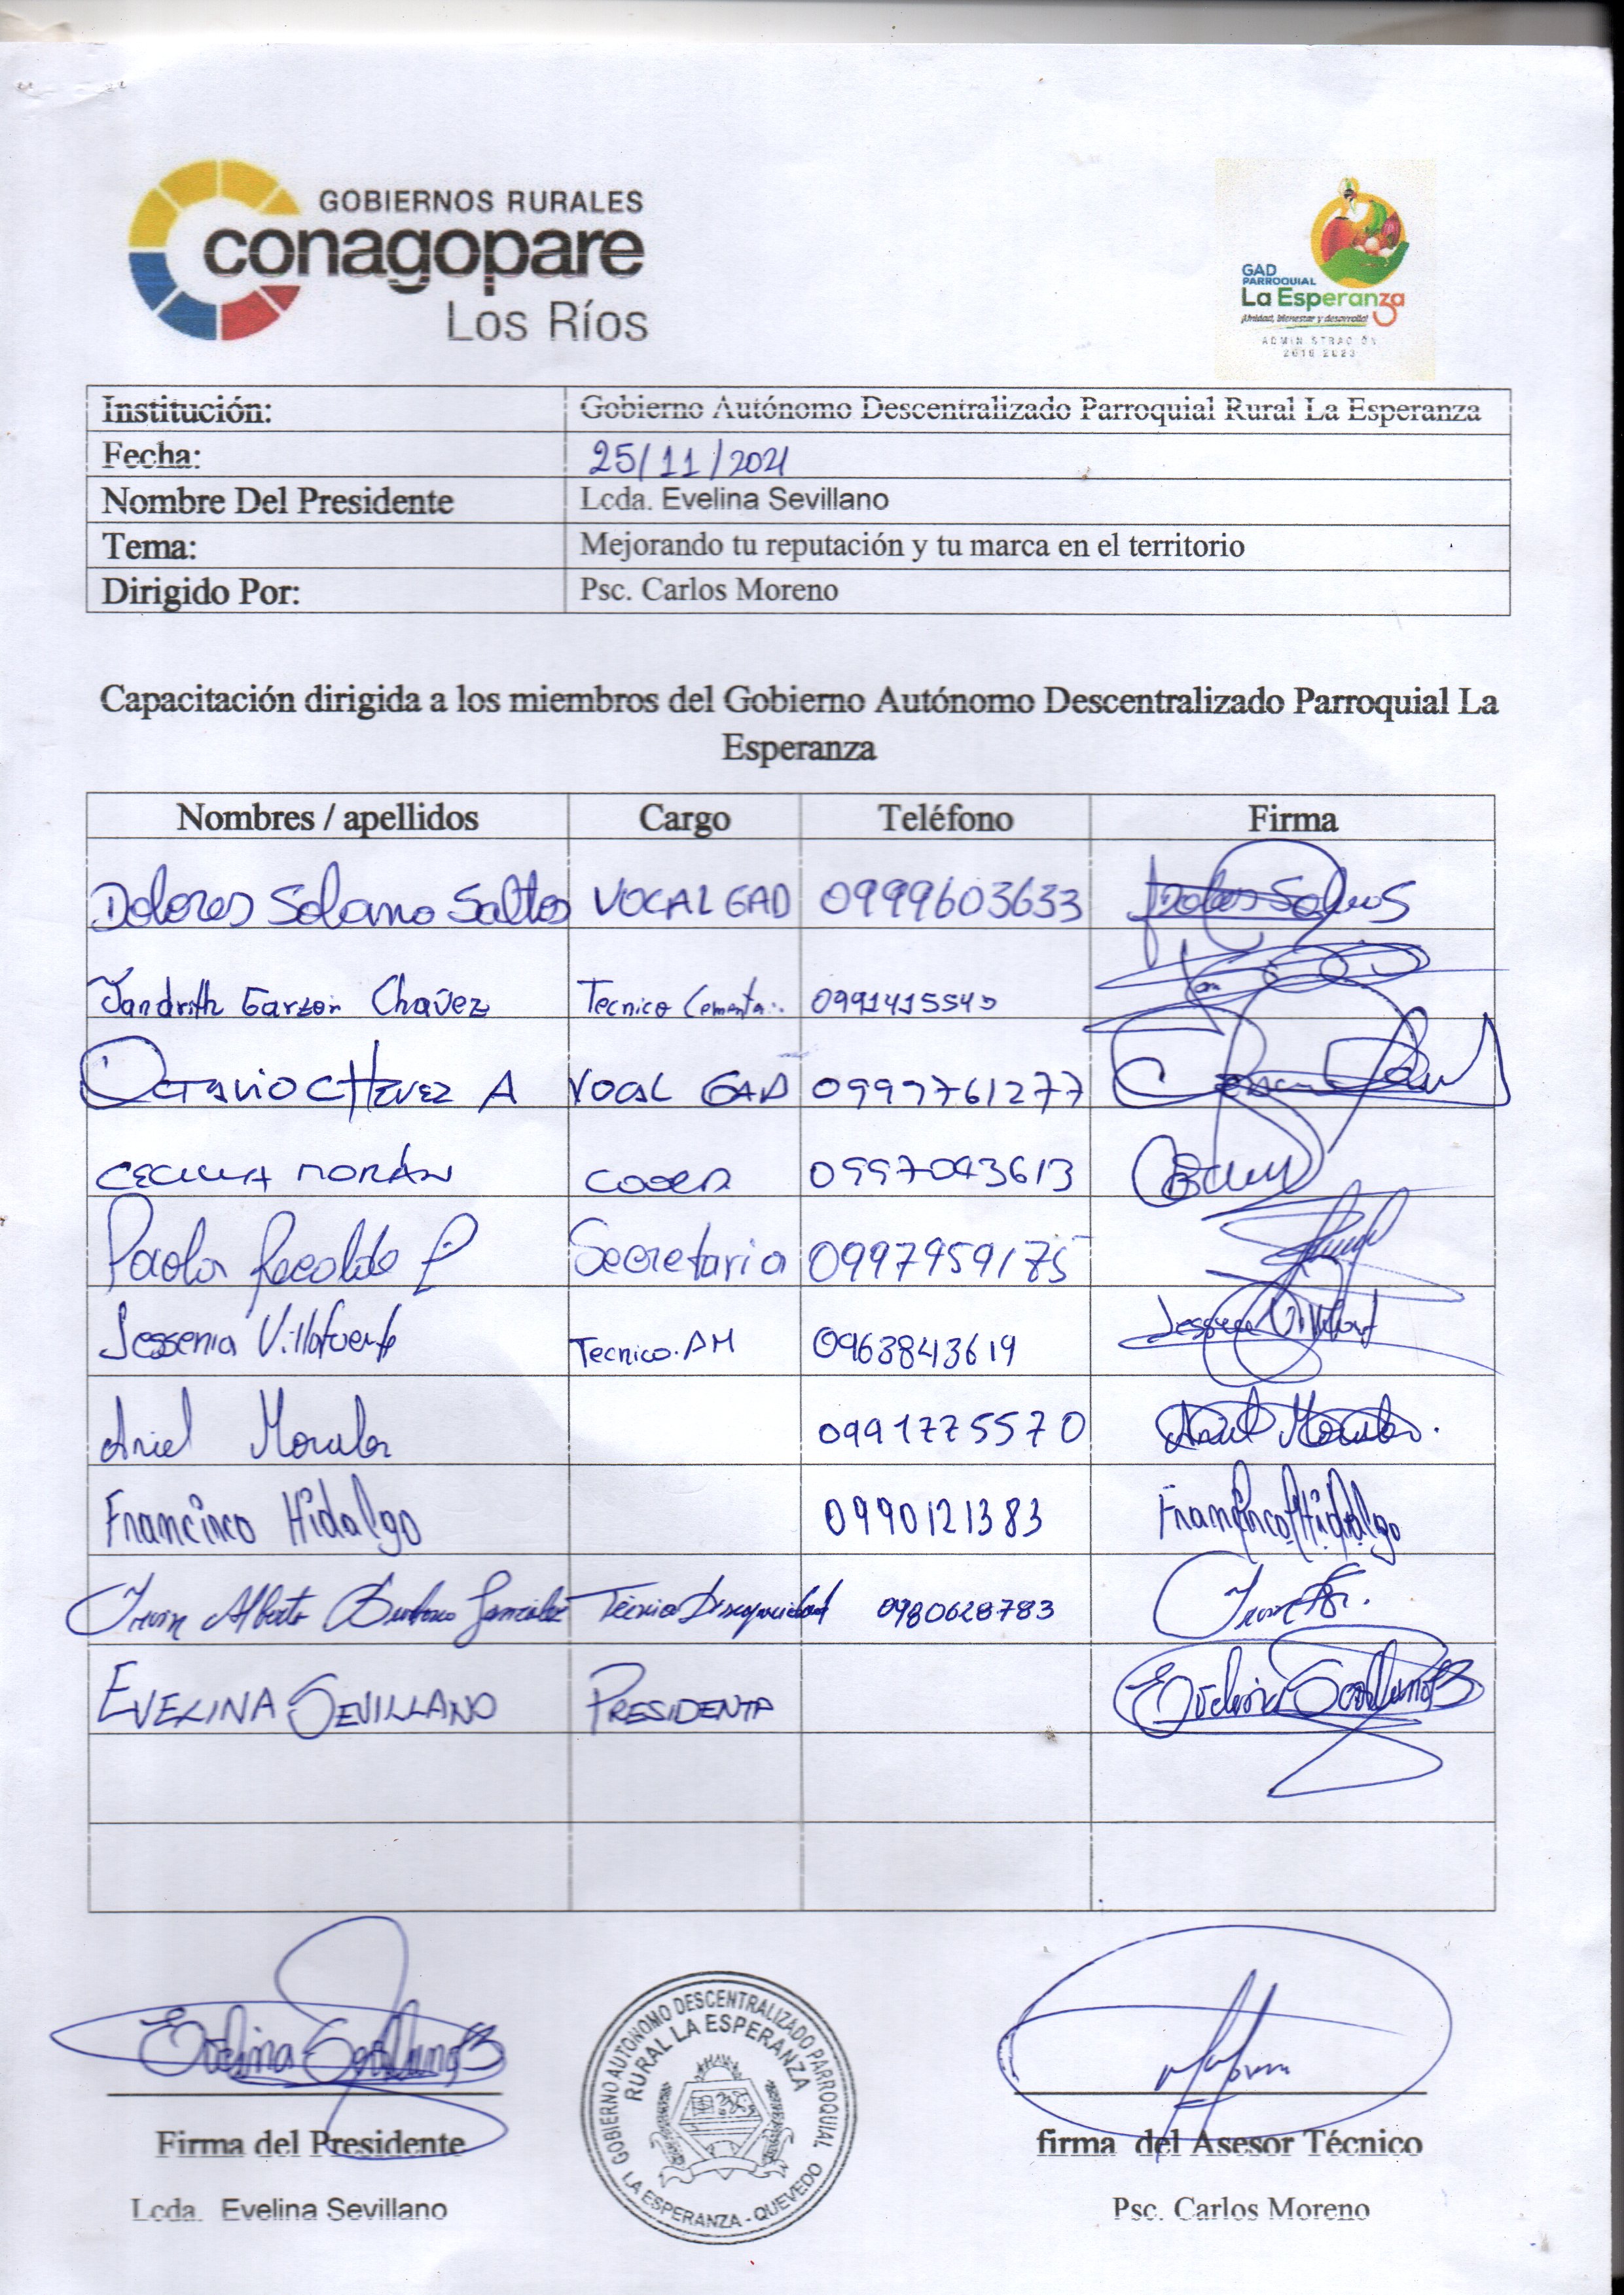 GOBIERNOS RURALES
conagopare
Los Ríos
GAD
PARROQUIAL
La Esperanza
¡Unidad, bienestar y desarrollo!
ADMINISTRACIÓN
Institución: Gobierno Autónomo Descentralizado Parroquial Rural La Esperanza
Fecha: 25/11/2021
Nombre Del Presidente Lcda. Evelina Sevillano
Tema: Mejorando tu reputación y tu marca en el territorio
Dirigido Por: Psc. Carlos Moreno
Capacitación dirigida a los miembros del Gobierno Autónomo Descentralizado Parroquial La
Esperanza
Nombres / apellidos Cargo Teléfono Firma
Dolores Solano Saltos VOCAL GAD 0999603633
Garzon Chavez Tecnico
OCTAVIO CHEVEZ A VOCAL GAD 0999761277
CECILIA MORÁN 0997043613
Paola Recalde P Secretaria 0997959175
Jessenia Villafuerte Tecnico.AM 0963843619
Ariel Morales 0991775570 Ariel Morales.
Francisco Hidalgo 0990121383 Francisco Hidalgo
Alberto Técnico Discapacidad 0980628783
EVELINA SEVILLANO PRESIDENTA Evelina Sevillano B
Evelina Sevillano B
Firma del Presidente
Lcda. Evelina Sevillano
GOBIERNO AUTONOMO DESCENTRALIZADO PARROQUIAL
RURAL LA ESPERANZA
LA ESPERANZA - QUEVEDO
firma del Asesor Técnico
Psc. Carlos Moreno